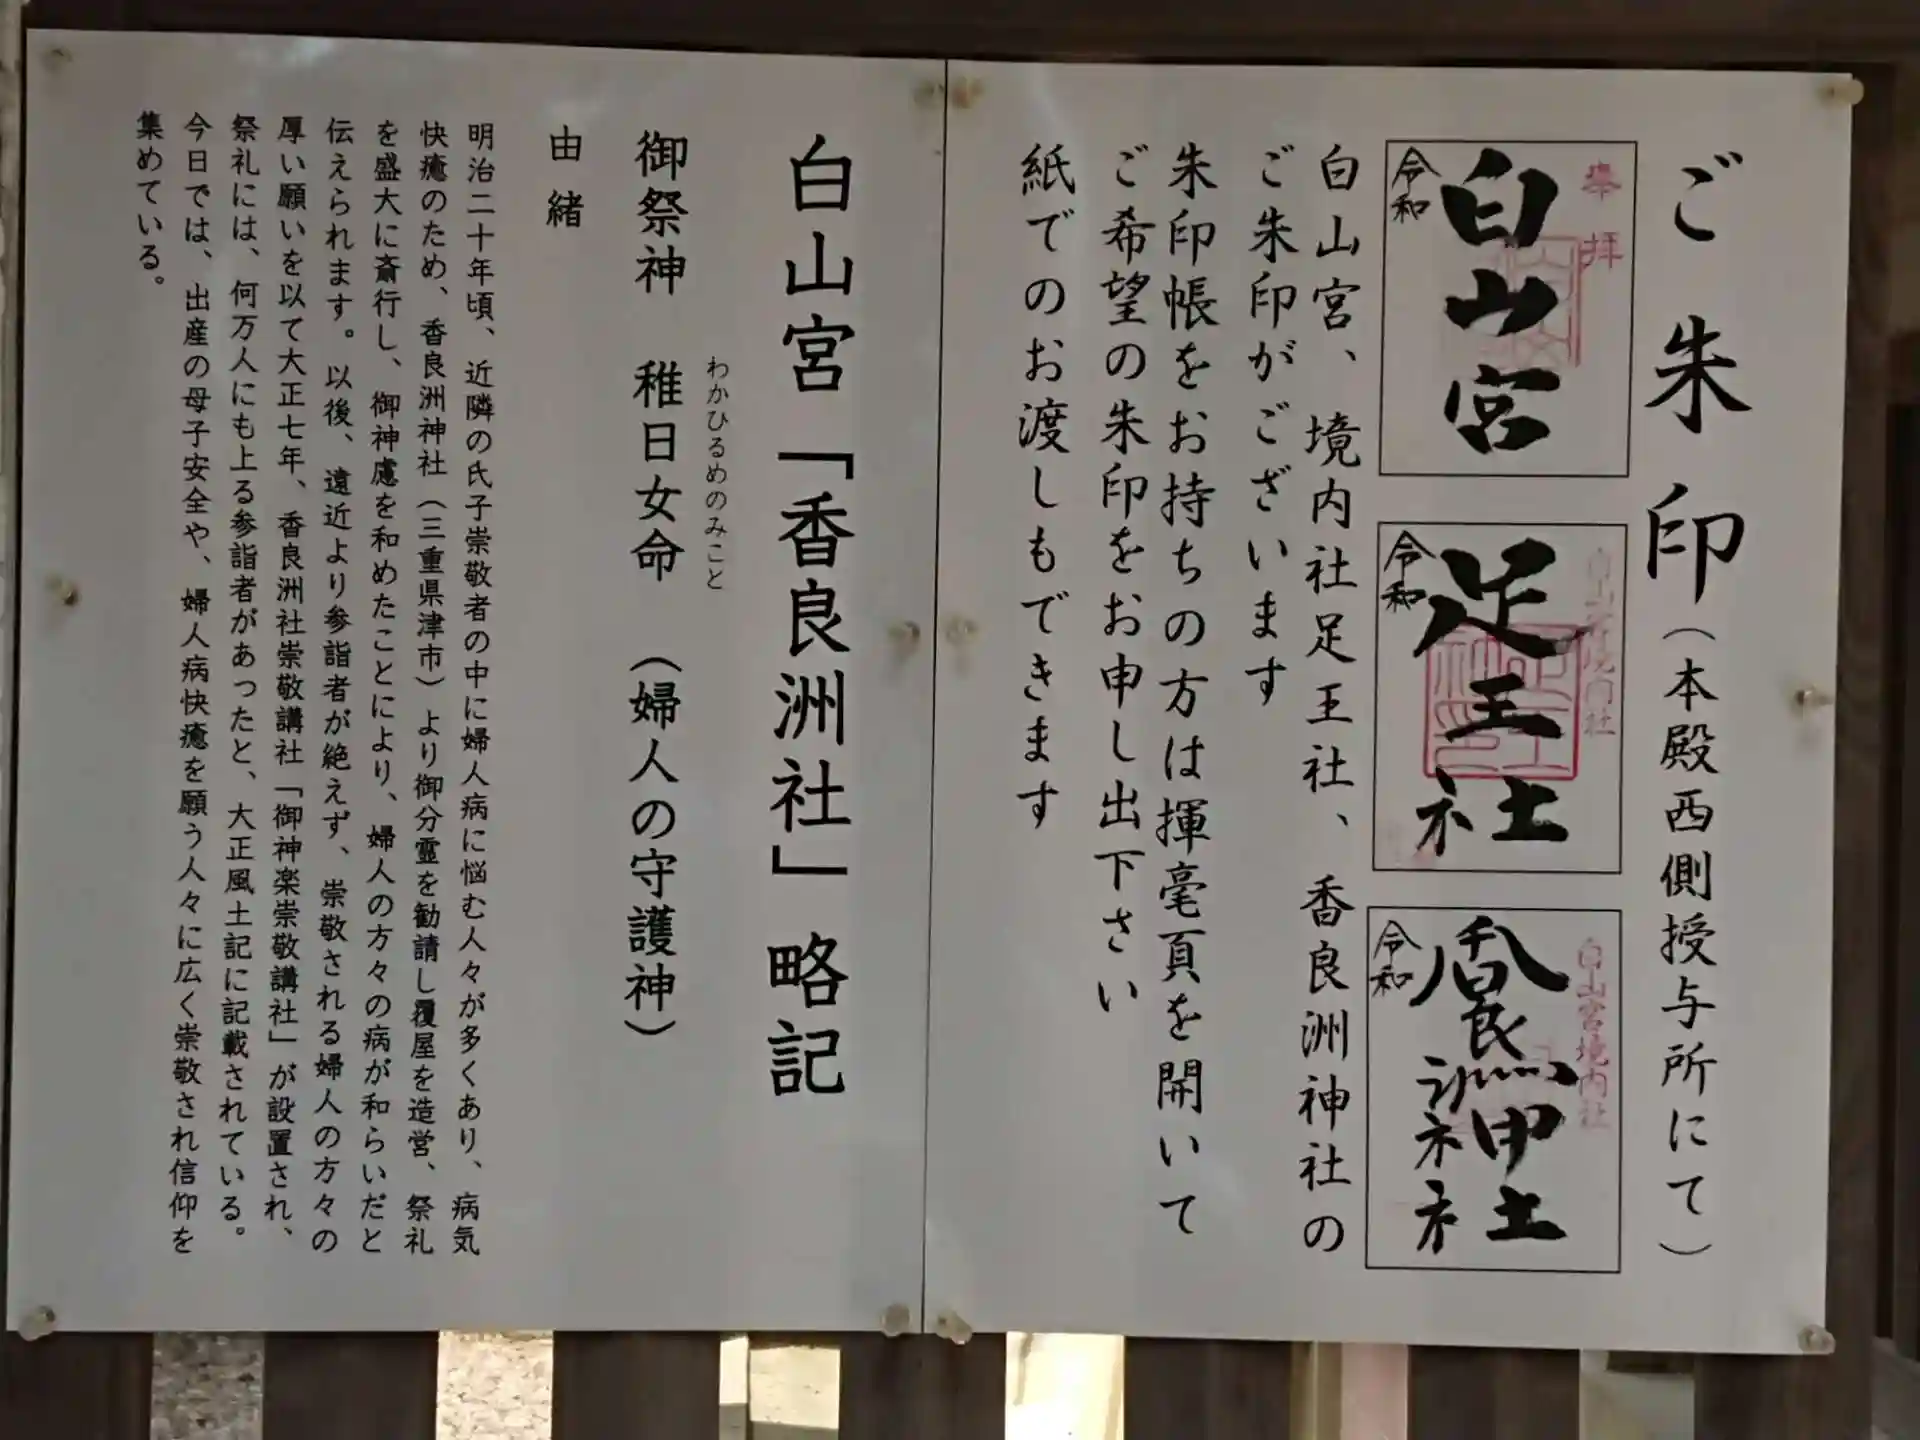 ご朱印（本殿西側授与所にて）
奉拝
白山宮
令和
白山宮境内社
足王社
令和
白山宮境内社
香良洲神社
令和
白山宮、境内社足王社、香良洲神社の
ご朱印がございます
朱印帳をお持ちの方は揮毫頁を開いて
ご希望の朱印をお申し出下さい
紙でのお渡しもできます
白山宮「香良洲社」略記
わかひるめのみこと
御祭神　稚日女命　（婦人の守護神）
由緒
明治二十年頃、近隣の氏子崇敬者の中に婦人病に悩む人々が多くあり、病気
快癒のため、香良洲神社（三重県津市）より御分霊を勧請し覆屋を造営、祭礼
を盛大に斎行し、御神慮を和めたことにより、婦人の方々の病が和らいだと
伝えられます。以後、遠近より参詣者が絶えず、崇敬される婦人の方々の
厚い願いを以て大正七年、香良洲社崇敬講社「御神楽崇敬講社」が設置され、
祭礼には、何万人にも上る参詣者があったと、大正風土記に記載されている。
今日では、出産の母子安全や、婦人病快癒を願う人々に広く崇敬され信仰を
集めている。